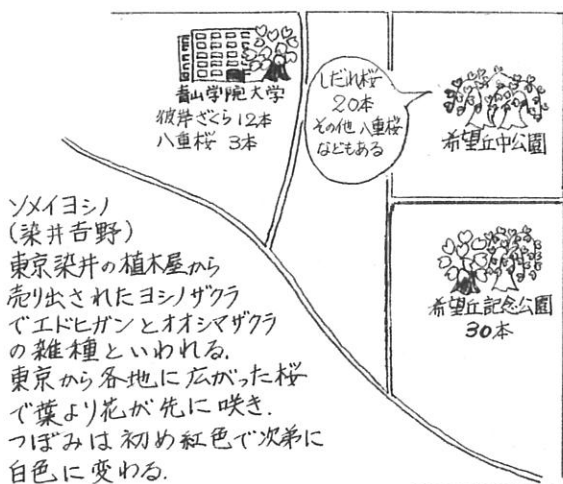 青山学院大学
彼岸ざくら12本
八重桜 3本
しだれ桜
20本
その他八重桜
などもある
希望丘中公園
希望丘記念公園
30本
ソメイヨシノ
(染井吉野)
東京染井の植木屋から
売り出されたヨシノザクラ
でエドヒガンとオオシマザクラ
の雑種といわれる.
東京から各地に広がった桜
で葉より花が先に咲き.
つぼみは初め紅色で次第に
白色に変わる.